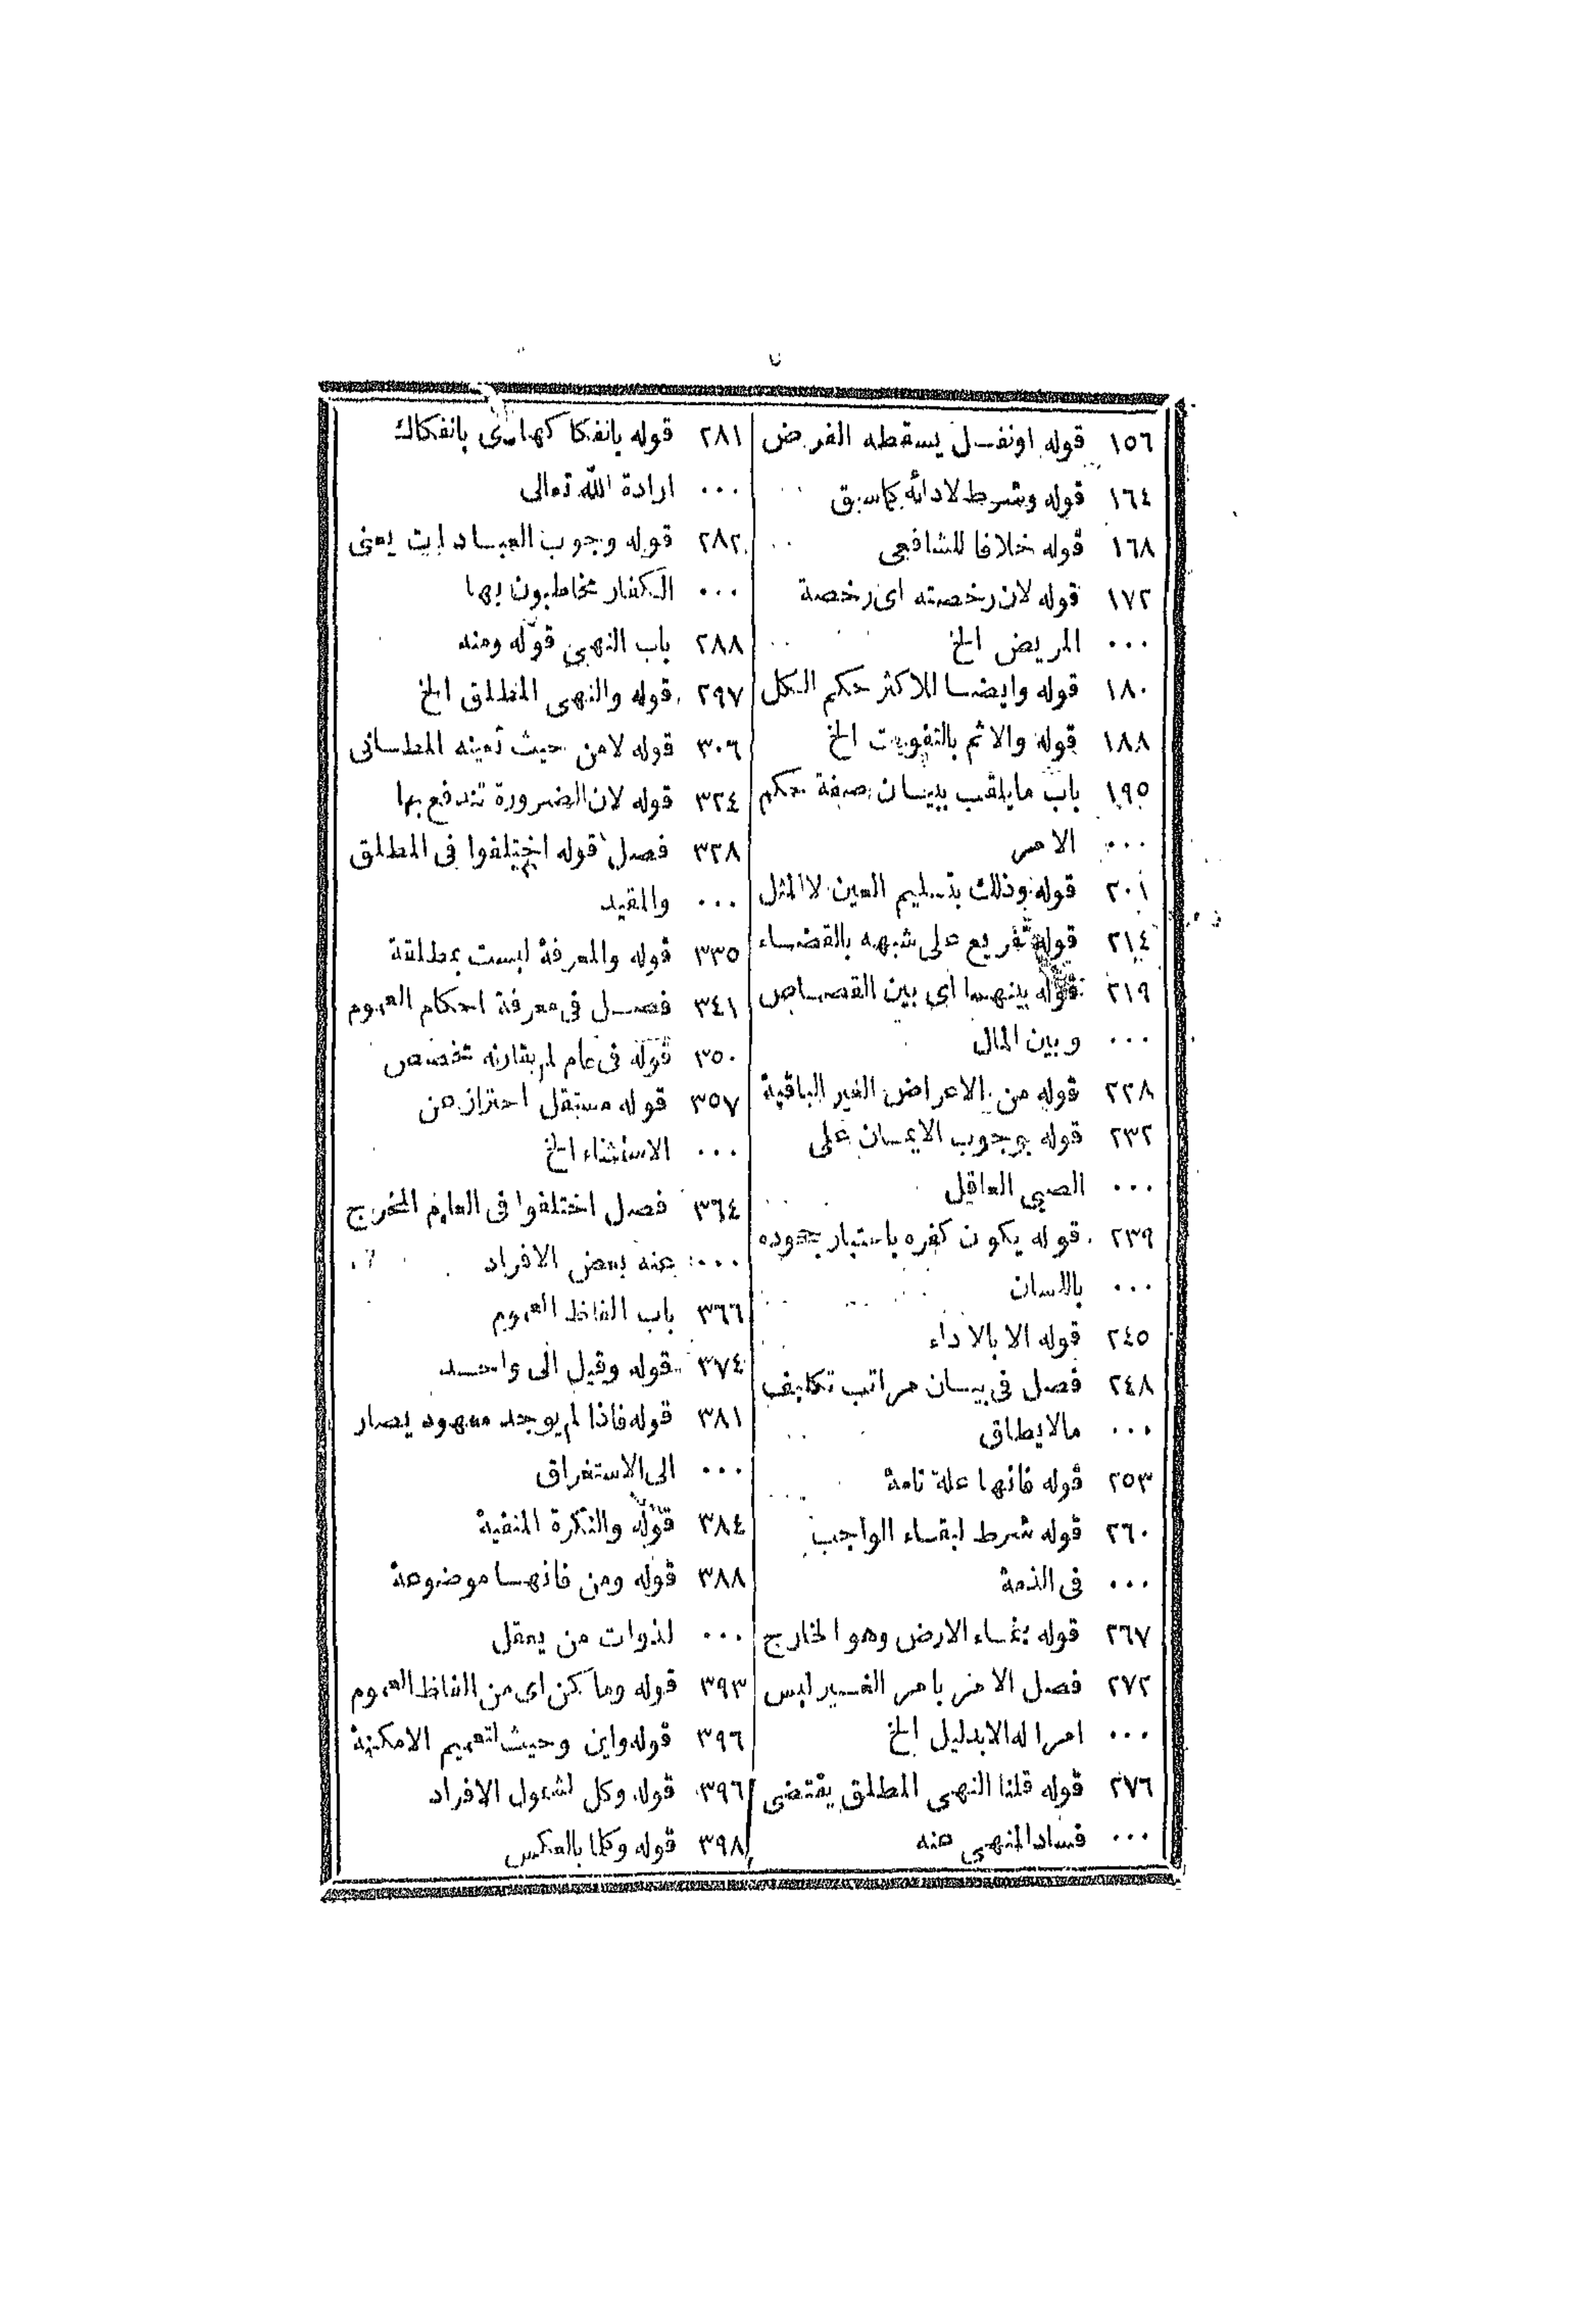 ١٥٦ قوله اونفسل يسقطه الفرض
١٦٤ قوله وشرط لادائه كماسبق
١٦٨ قوله خلافا للشافعى
١٧٢ قوله لان رخصته اى رخصة
٠٠٠ المريض الخ
١٨٠ قوله وايضا للاكثر حكم الكل
١٨٨ قوله والاثم بالتفويت الخ
١٩٥ باب مايلقب ببيان صفة حكم
٠٠٠ الامر
٢٠١ قوله وذلك بتسليم العين لا المثل
٢١٤ قوله تفريع على شبهه بالقضاء
٢١٩ قوله بينهما اى بين القصاص
٠٠٠ وبين المال
٢٢٨ قوله من الاعراض الغير الباقية
٢٣٢ قوله بوجوب الايمان على
٠٠٠ الصبى العاقل
٢٣٩ قوله يكون كفره باعتبار جحوده
٠٠٠ باللسان
٢٤٥ قوله الا بالاداء
٢٤٨ فصل فى بيان مراتب تكليف
٠٠٠ مالايطاق
٢٥٣ قوله فانها علة تامة
٢٦٠ قوله شرط لبقاء الواجب
٠٠٠ فى الذمة
٢٦٧ قوله بنماء الارض وهو الخارج
٢٧٢ فصل الامر بامر الغير ليس
٠٠٠ امرا له الابدليل الخ
٢٧٦ قوله قلنا النهى المطلق يقتضى
٠٠٠ فساد المنهى عنه
٢٨١ قوله بانفكا كهااى بانفكاك
٠٠٠ ارادة الله تعالى
٢٨٢ قوله وجوب العبادات يعنى
٠٠٠ الكفار مخاطبون بها
٢٨٨ باب النهى قوله ومنه
٢٩٧ قوله والنهى المطلق الخ
٣٠٦ قوله لامن حيث تعينه المطانى
٣٢٤ قوله لان الضرورة تندفع بها
٣٢٨ فصل قوله اختلفوا فى المطلق
٠٠٠ والمقيد
٣٣٥ قوله والمعرفة ليست بمطلقة
٣٤١ فصل فى معرفة احكام العموم
٣٥٠ قوله فى عام لم يقارنه تخصص
٣٥٧ قوله مستقل احتراز عن
٠٠٠ الاستثناء الخ
٣٦٤ فصل اختلفوا فى العام المخرج
٠٠٠ عنه بعض الافراد
٣٦٦ باب الفاظ العموم
٣٧٤ قوله وقيل الى واحد
٣٨١ قوله فاذا لم يوجد معهود يصار
٠٠٠ الى الاستغراق
٣٨٤ قوله والنكرة المنفية
٣٨٨ قوله ومن فانها موضوعة
٠٠٠ لذوات من يعقل
٣٩٣ قوله وما كن اى من الفاظ العموم
٣٩٦ قوله واين وحيث لتعميم الامكنة
٣٩٦ قوله وكل لشمول الافراد
٣٩٨ قوله وكلا بالعكس